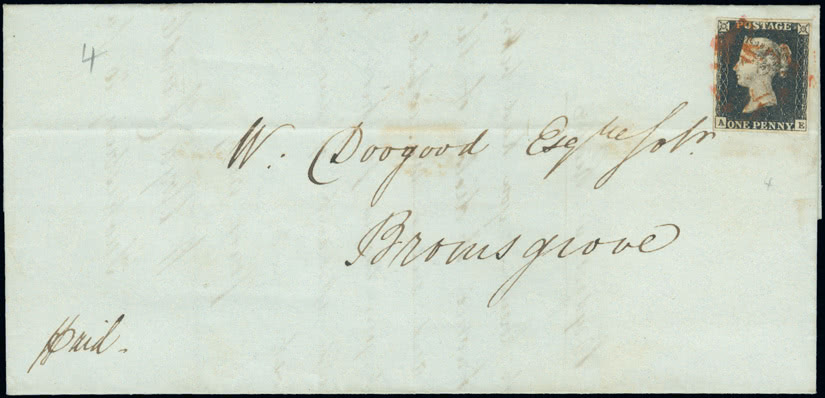 4
POSTAGE
A ONE PENNY E
W. Doogood Esqre Solr
Bromsgrove
4
Paid.